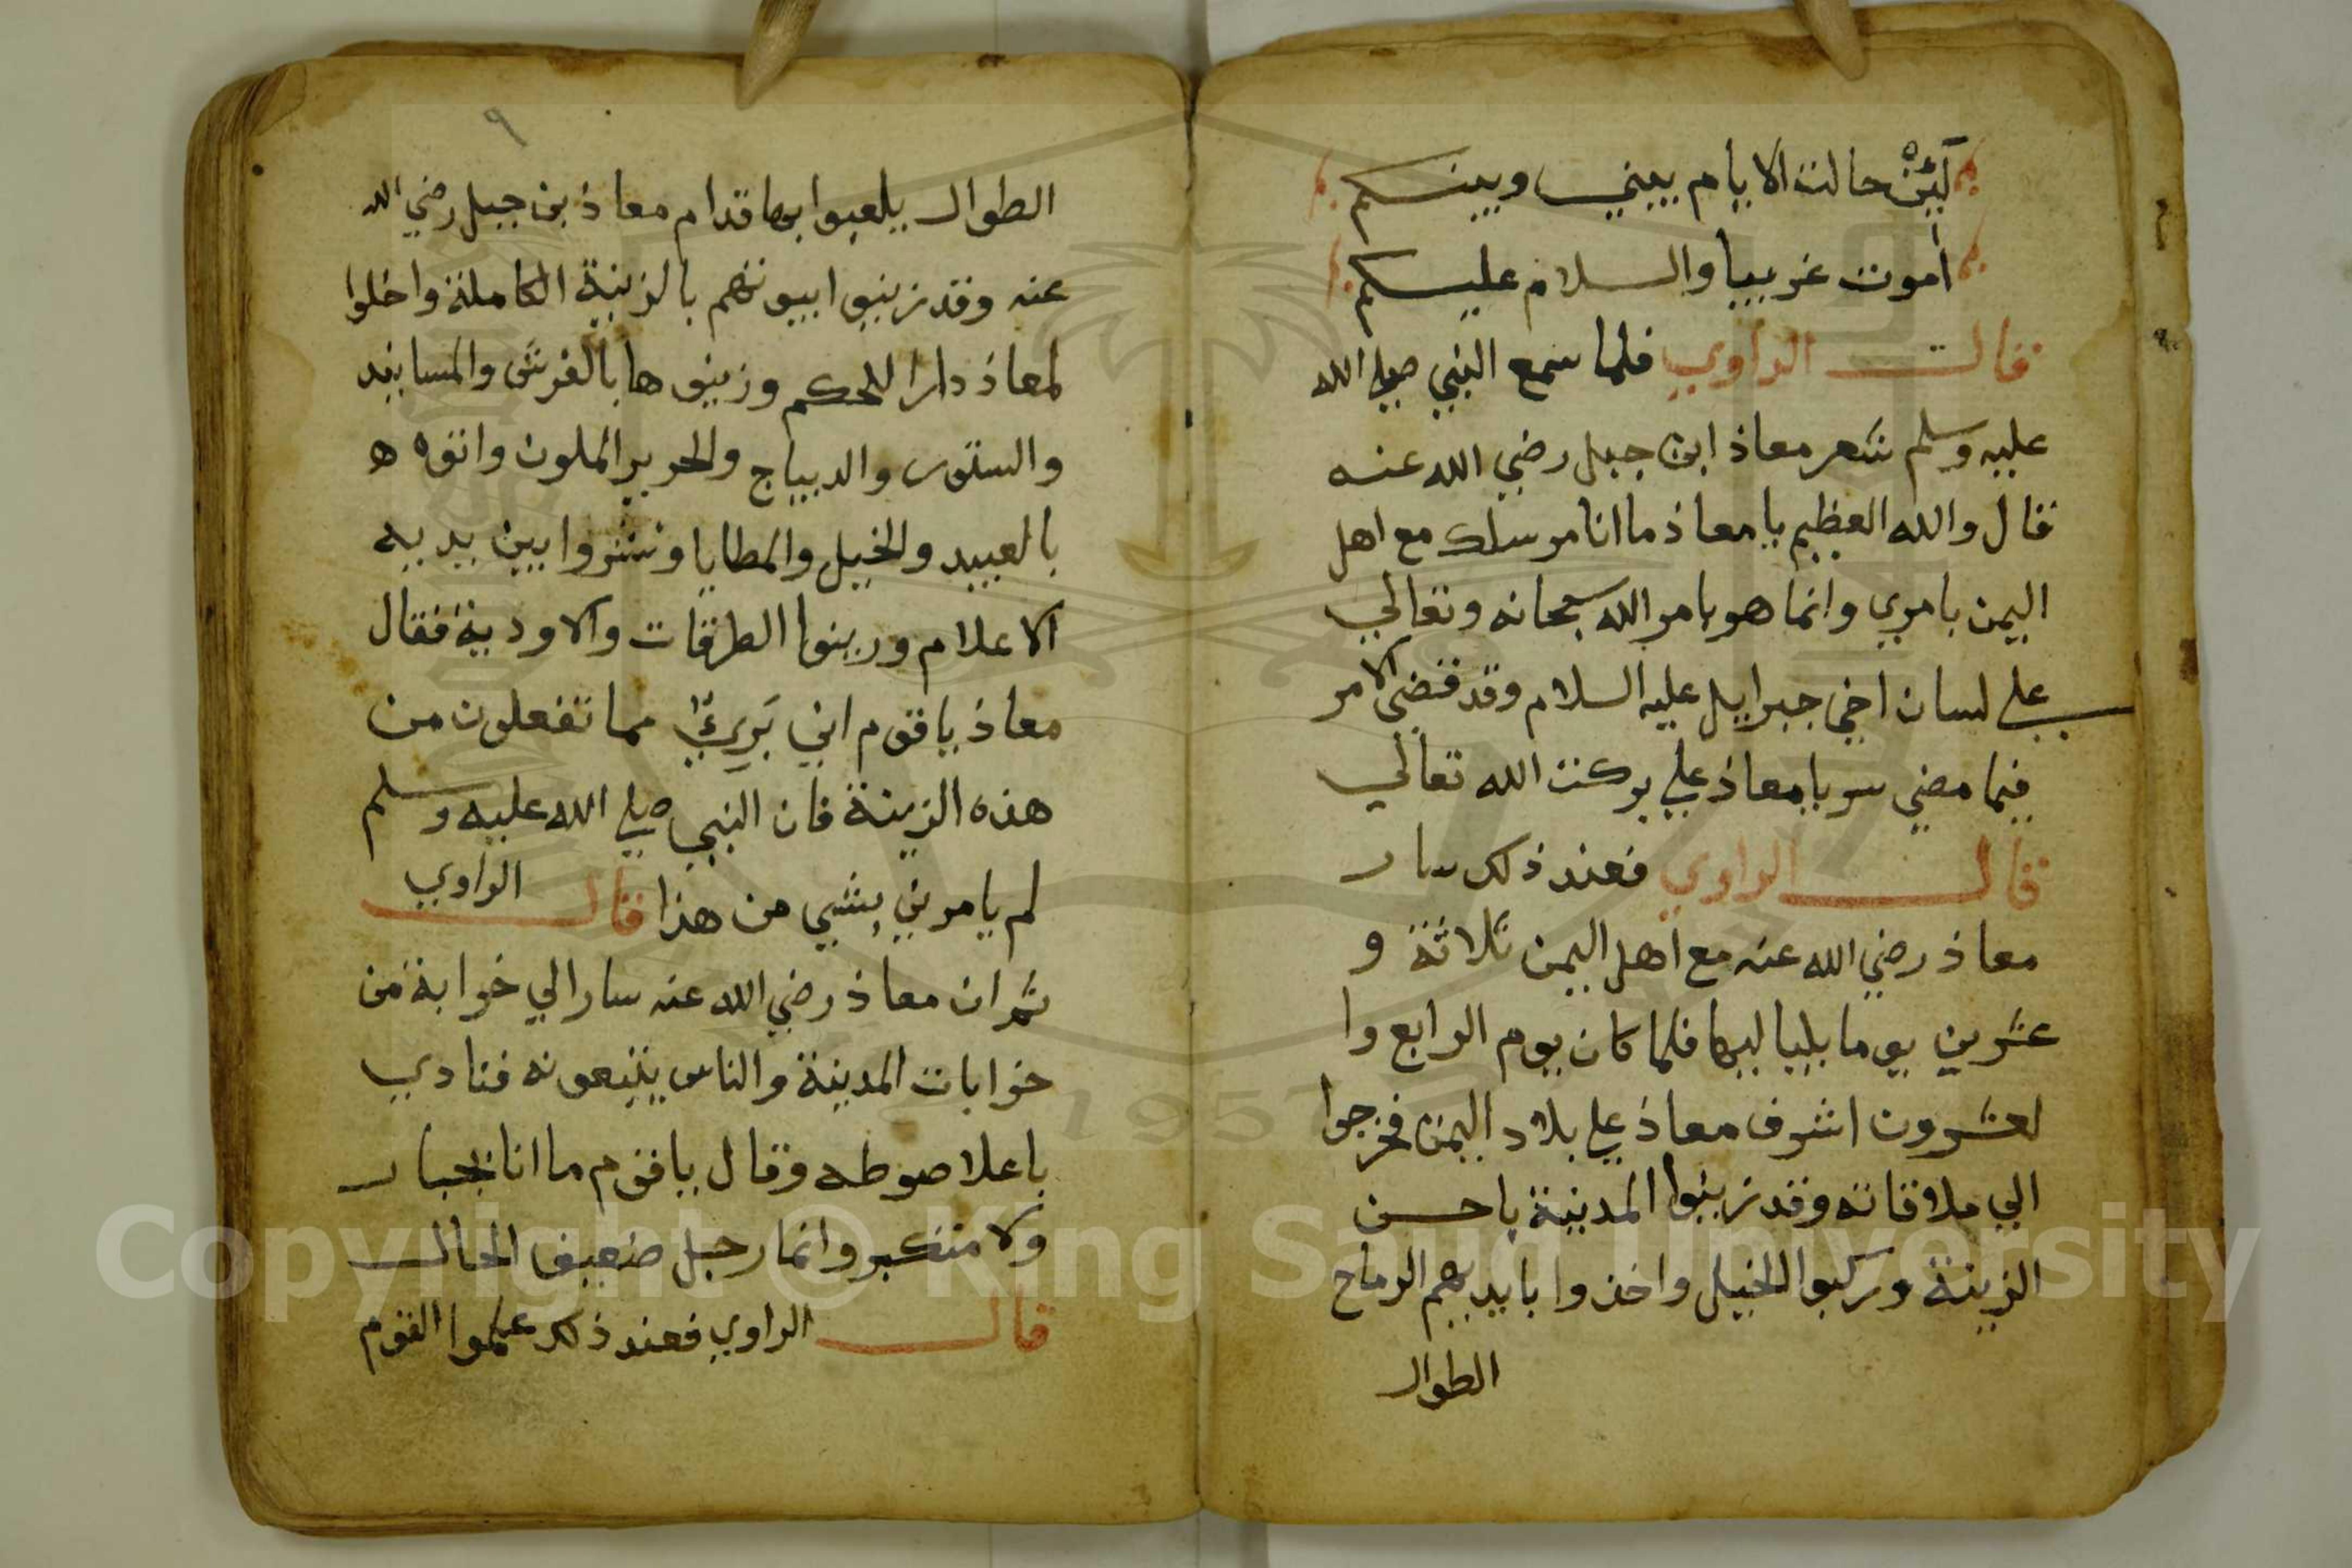 لَئِنْ حالت الايام بيني وبينكم
أموت غريبا والسلام عليكم
قال الراوي فلما سمع النبي صلي الله
عليه وسلم شعر معاذ ابن جبل رضي الله عنه
قال والله العظيم يا معاذ ما انا مرسلك مع اهل
اليمن بامري وانما هو بامر الله سبحانه وتعالي
علي لسان اخي جبرايل عليه السلام وقد قضي الامر
فيما مضي سر يا معاذ علي بركت الله تعالي
قال الراوي فعند ذلك سار
معاذ رضي الله عنه مع اهل اليمن ثلاثة و
عشرين يوما بلياليها فلما كان يوم الرابع وا
لعشرون اشرف معاذ علي بلاد اليمن فخرجوا
الي ملاقاته وقد زينوا المدينة باحسن
الزينة وركبوا الخيل واخذوا بايديهم الرماح
الطوال
٩
الطوال يلعبوا بها قدام معاذ بن جبل رضي الله
عنه وقد زينوا بيوتهم بالزينة الكاملة واخلوا
لمعاذ دارا للحكم وزينوها بالفرش والمسانيد
والستور والديباج والحرير الملون واتوه ه
بالعبيد والخيل والمطايا ونشروا بين يديه
الاعلام وزينوا الطرقات والاودية فقال
معاذ يا قوم اني بَرِيٌّ مما تفعلون من
هذه الزينة فان النبي صلي الله عليه وسلم
لم يامرني بشي من هذا قال الراوي
ثم ان معاذ رضي الله عنه سار الي خرابة من
خرابات المدينة والناس يتبعونه فنادي
باعلا صوطه وقال يا قوم ما انا بجبار
ولا متكبر وانما رجل ضعيف الحال
قال الراوي فعند ذلك علموا القوم
Copyright © King Saud University
1957